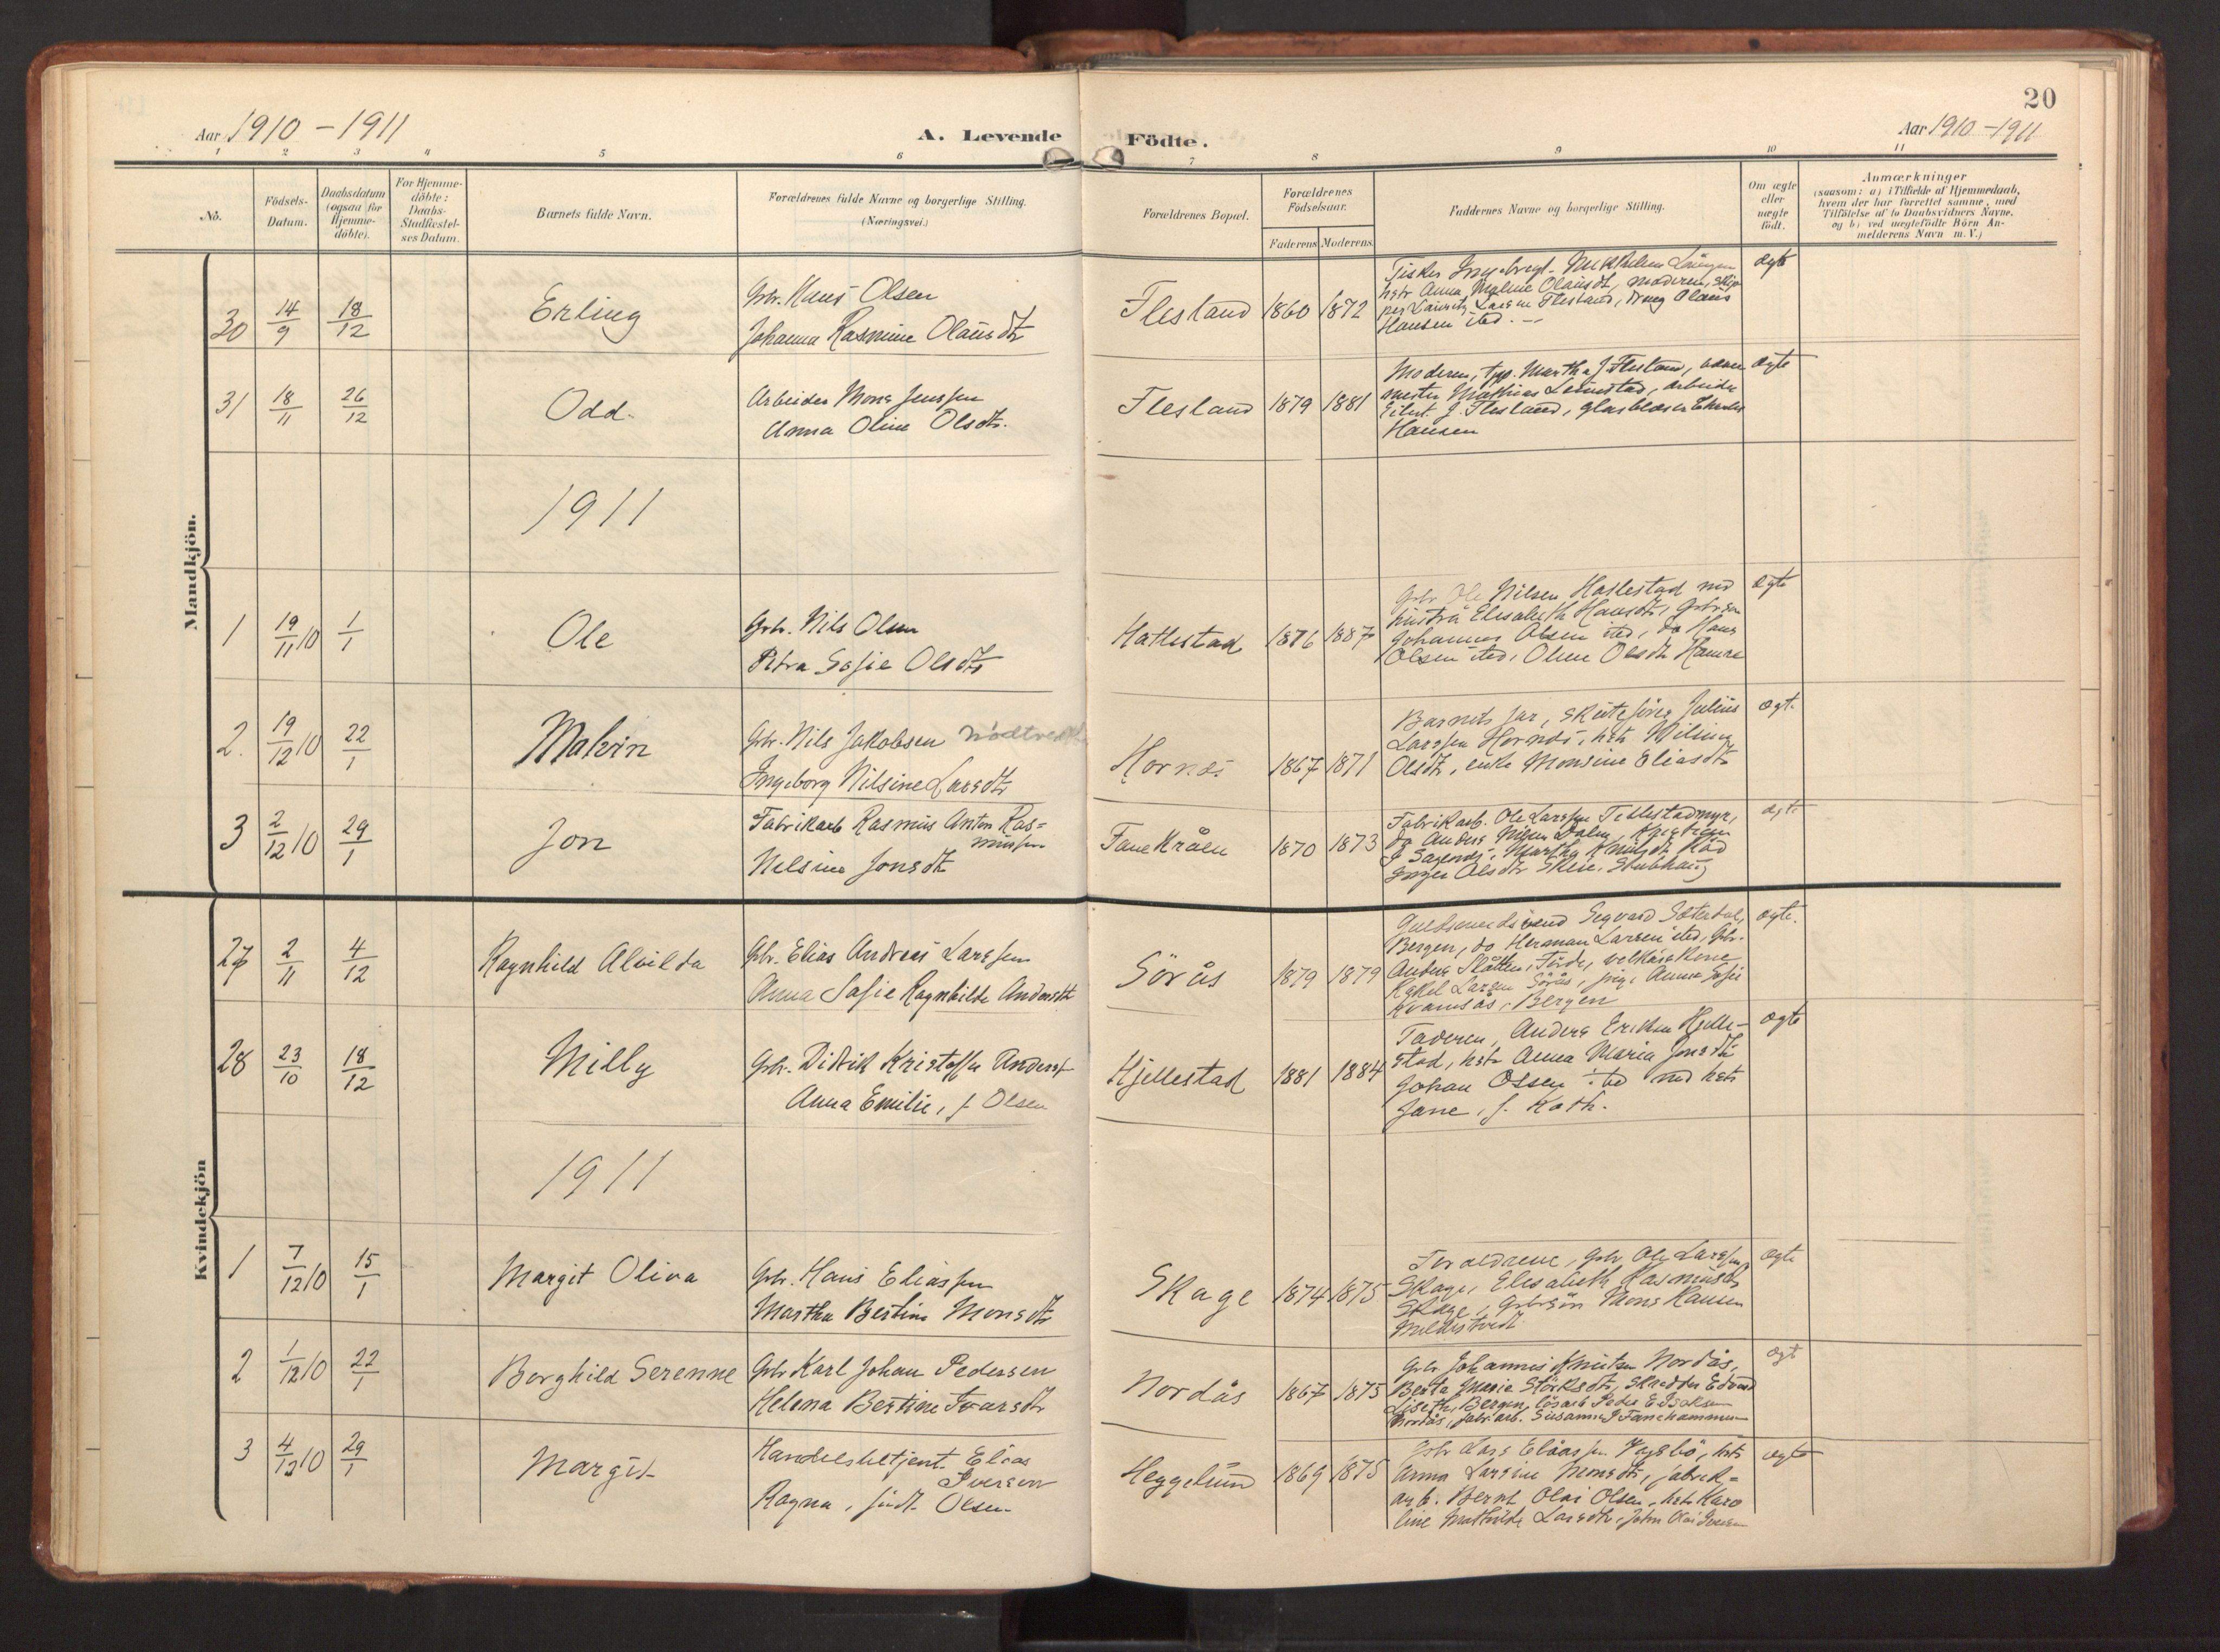 20
Aar 1910 - 1911
A. Levende Födte.
Aar 1910 - 1911
1 2 3 4 5 6 7 8 9 10 11
No.
Födsels-Datum.
Daabsdatum (ogsaa for Hjemme-döbte).
For Hjemme-döbte: Daabs-Stadfæstel-ses Datum.
Barnets fulde Navn.
Forældrenes fulde Navne og borgerlige Stilling.
(Næringsvei.)
Forældrenes Bopæl.
Forældrenes Födselsaar.
Faderens Moderens
Faddernes Navne og borgerlige Stilling.
Om ægte eller uægte födt.
Anmærkninger
(saasom: a) i Tilfælde af Hjemmedaab,
hvem der har forrettet samme, med
Tilföielse af to Daabsvidners Navne,
og b) ved uægtefödte Börn An-
melderens Navn m. V.)
Mandkjön.
30 14/9 18/12 Erling Gbr. Hans Olsen
Johanna Rasmine Olausdtr
Flesland 1860 1872
Fisker
hstr Anna Malene Olausdt, moderen, skip
per Lauritz Larsen Flesland, dreng Olaus
Hansen ibd. -
ægte
31 18/11 26/12 Odd. Arbeider Mons Jenssen
Anna Oline Olsdtr.
Flesland 1879 1881
Moderen, Martha J. Flesland,
mester Mathias arbeider
J. Flesland, glasblæser
Hansen
ægte
1911
1 19/11 10 1/1 Ole Gbr. Nils Olsen
Petra Sofie Olsdtr
Hatlestad 1876 1887
Gbr Ole Nilsen Hatlestad med
hustru Elisabeth Hansdtr, Gbrsøn
Johannes Olsen ibd, do Hans
Olsen ibd, Oline Olsdtr Hamre
ægte
2. 19/12 10 22/1 Malvin Gbr. Nils Jakobsen Nödtvedt
Ingeborg Nilsine Larsdtr
Hornes 1867 1871
Barnets far, Julius
Larssen Hornes, hstr
Olsdtr, enke Monsine Eliasdtr
ægt.
3 2/12 10 29/1 Jon Fabrikarb Rasmus Anton Ras=
mussen
Nilsine Jonsdtr
Fanekråen 1870 1873
Fabrikarb. Ole Larssen
do Anders
Martha
Inger Olsdtr
ægt.
Kvindekjön
27 2/11 4/12 Ragnhild Alvilda Gbr. Elias Andreas Larssen
Anna Sofie Ragnhilde Andersdtr
Sörås 1879 1879
Guldsmedsvend Sigvard
Bergen, do Herman Larsen ibd, Gbr.
Anders
Larsen Sörås, pige Anna Sofie
Kvamsås, Bergen
ægte.
28 23/10 18/12 Milly Gbr. Didrik Kristoffer Anderss
Anna Emilie, f. Olsen
Hjellestad 1881 1884
Faderen, Anders Eriksen Hjelle-
stad, hstr Anna Maria Jonsdtr
Johan Olsen ibd med hstr
Jane, f. Koth.
ægte
1911
1 7/12 10 15/1 Margit Oliva Gbr. Hans Eliassen
Martha Bertine Monsdtr
Skage 1874 1875
Foreldrene, gbr Ole Larssen
Skage, Elisabeth Rasmusdtr
Skage, Gbrsön Mons Hansen
Mildestvedt
ægte
2 1/12 10 22/1 Borghild Serenne Gbr Karl Johan Pedersen
Helena Bertine Ivarsdtr
Nordås 1867 1875
Gbr Johannes Knutsen Nordås,
Berta Marie skrædder Edvard
Bergen, Peder
Nordås, fabr.arb. Susanne J Fanehammeren
ægt
3 4/12 10 29/1 Margit Handelsbetjent. Elias
Iversen
Ragna, født Olsen
Heggelund 1869 1875
Gbr Lars Eliassen Vågsbö, hstr
Anna Larsine Monsdtr, fabrik=
arb. Bernt Olai Olsen, hstr Karo
line Mathilde Larsdtr, John Olai Iversen
ægte